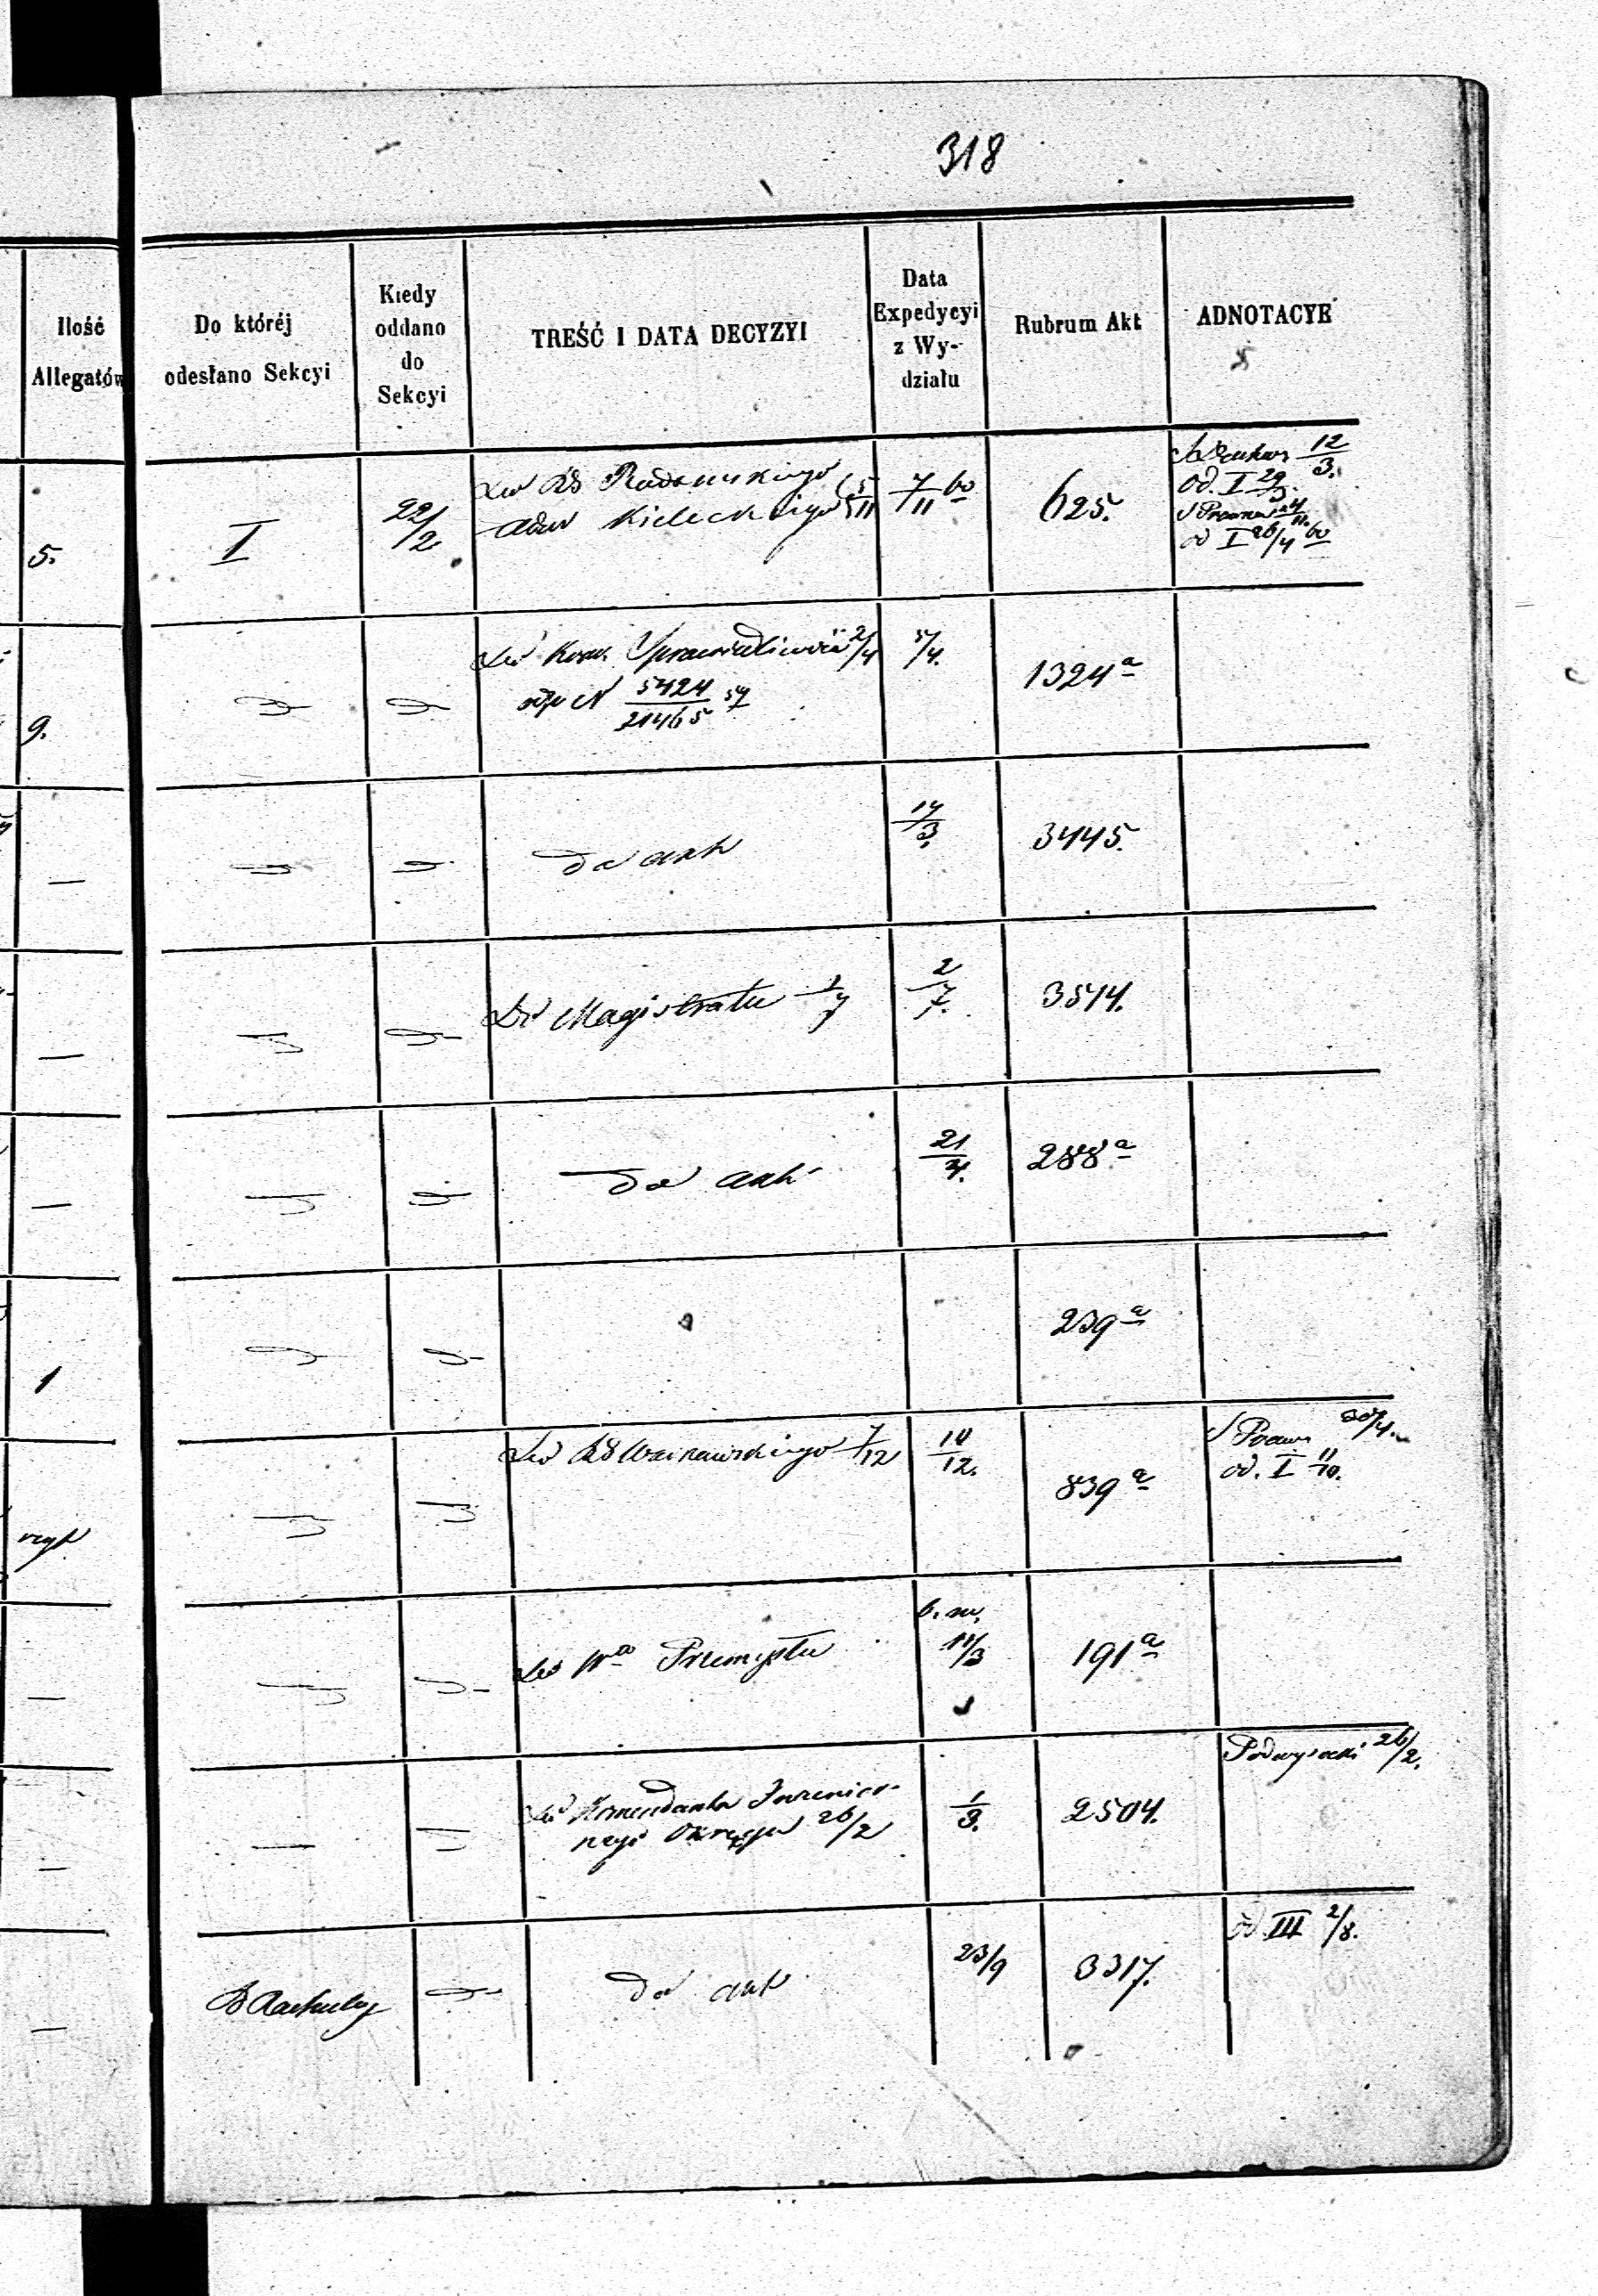 318
Ilość
Allegatów
Do któréj
odesłano Sekcyi
Kiedy
oddano
do
Sekcyi
TREŚĆ I DATA DECYZYI
Data
Expedycyi
z Wy-
działu
Rubrum Akt
ADNOTACYE
5.
I
22/2
Do RG Radomskiego
Kieleckiego 5/11
7/11 60
625.
12/3.
od. I 29/3.
od I 26/4 60
9.
Do Kom. Sprawiedliwości 2/4
N 5424/21465 57
5/4.
1324a
—
do akt
14/3.
3445.
—
Do Magistratu 1/7
2/7.
3514.
—
do akt
21/4.
288a
1
239a
Do RG Warszawskiego 7/12
10/12.
839a
od. I 11/10.
—
Do Wa Przemysłu
b. m.
14/3
191a
—
Do Komendanta Inzenier-
nego Okręgu 26/2
1/3.
2504.
Podwysocki 26/2.
—
do akt
23/9
3317.
od III 2/8.